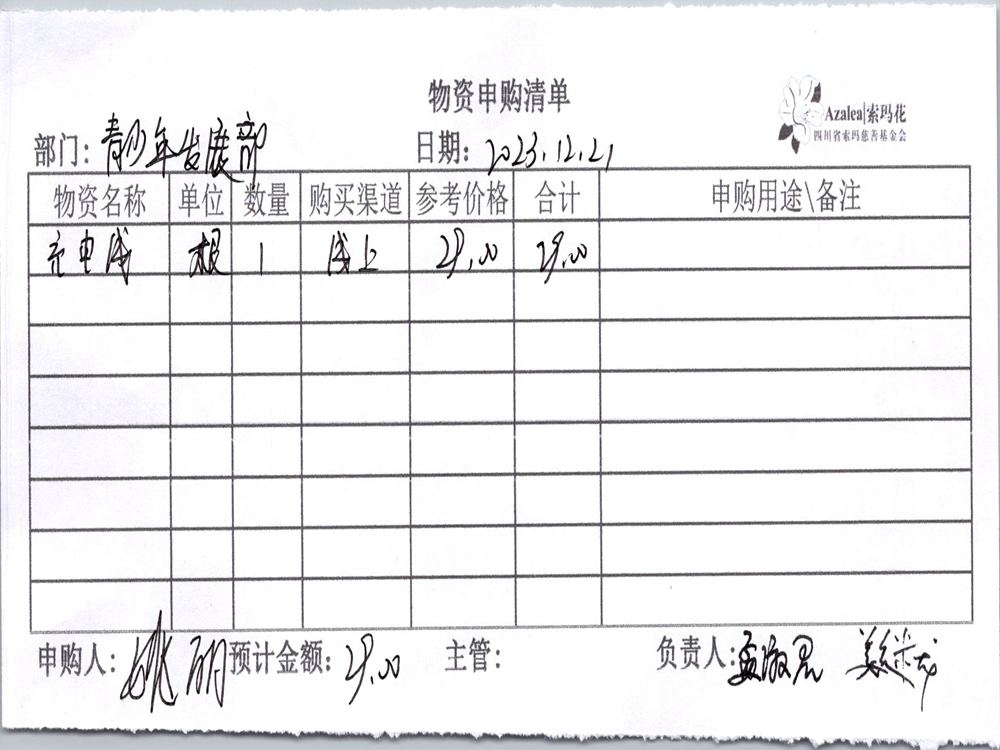 物资申购清单
Azalea|索玛花
四川省索玛慈善基金会
部门：青少年发展部 日期：2023.12.21
物资名称 单位 数量 购买渠道 参考价格 合计 申购用途\备注
充电线 根 1 线上 29.00 29.00
申购人：姚明 预计金额：29.00 主管： 负责人：